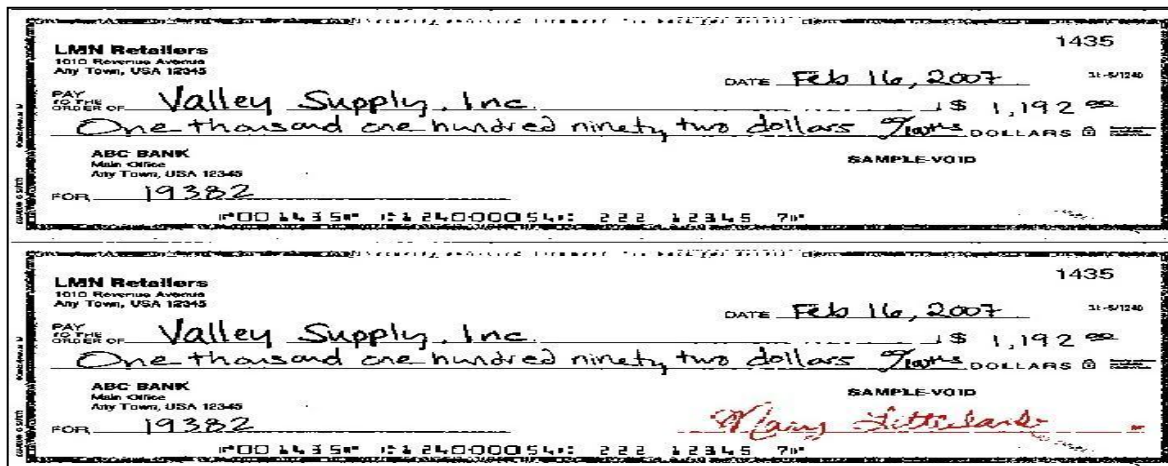 1435
LMN Retailers
1010 Revenue Avenue
Any Town, USA 12345
DATE Feb 16, 2007
PAY
TO THE
ORDER OF Valley Supply, Inc. $ 1,192 00
One thousand one hundred ninety two dollars DOLLARS
ABC BANK
Main Office
Any Town, USA 12345
SAMPLE-VOID
FOR 19382
1435
LMN Retailers
1010 Revenue Avenue
Any Town, USA 12345
DATE Feb 16, 2007
PAY
TO THE
ORDER OF Valley Supply, Inc. $ 1,192 00
One thousand one hundred ninety two dollars DOLLARS
ABC BANK
Main Office
Any Town, USA 12345
SAMPLE-VOID
FOR 19382 Mary